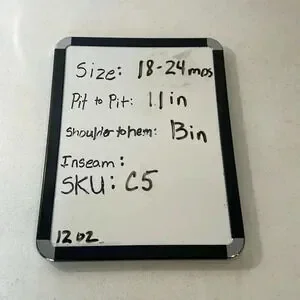 Size: 18-24mos
Pit to Pit: 11in
Shoulder to hem: 13in
Inseam:
SKU: C5
12oz